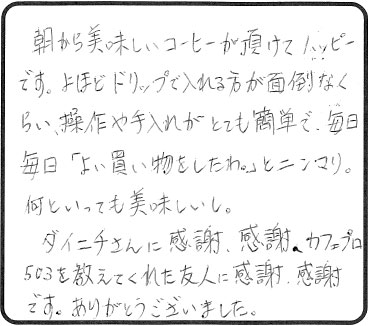 朝から美味しいコーヒーが頂けてハッピー
です。よほどドリップで入れる方が面倒なく
らい、操作や手入れがとても簡単で、毎日
毎日「よい買い物をしたわ。」とニンマリ。
何といっても美味しいし。
ダイニチさんに感謝、感謝。カフェプロ
503を教えてくれた友人に感謝、感謝
です。ありがとうございました。